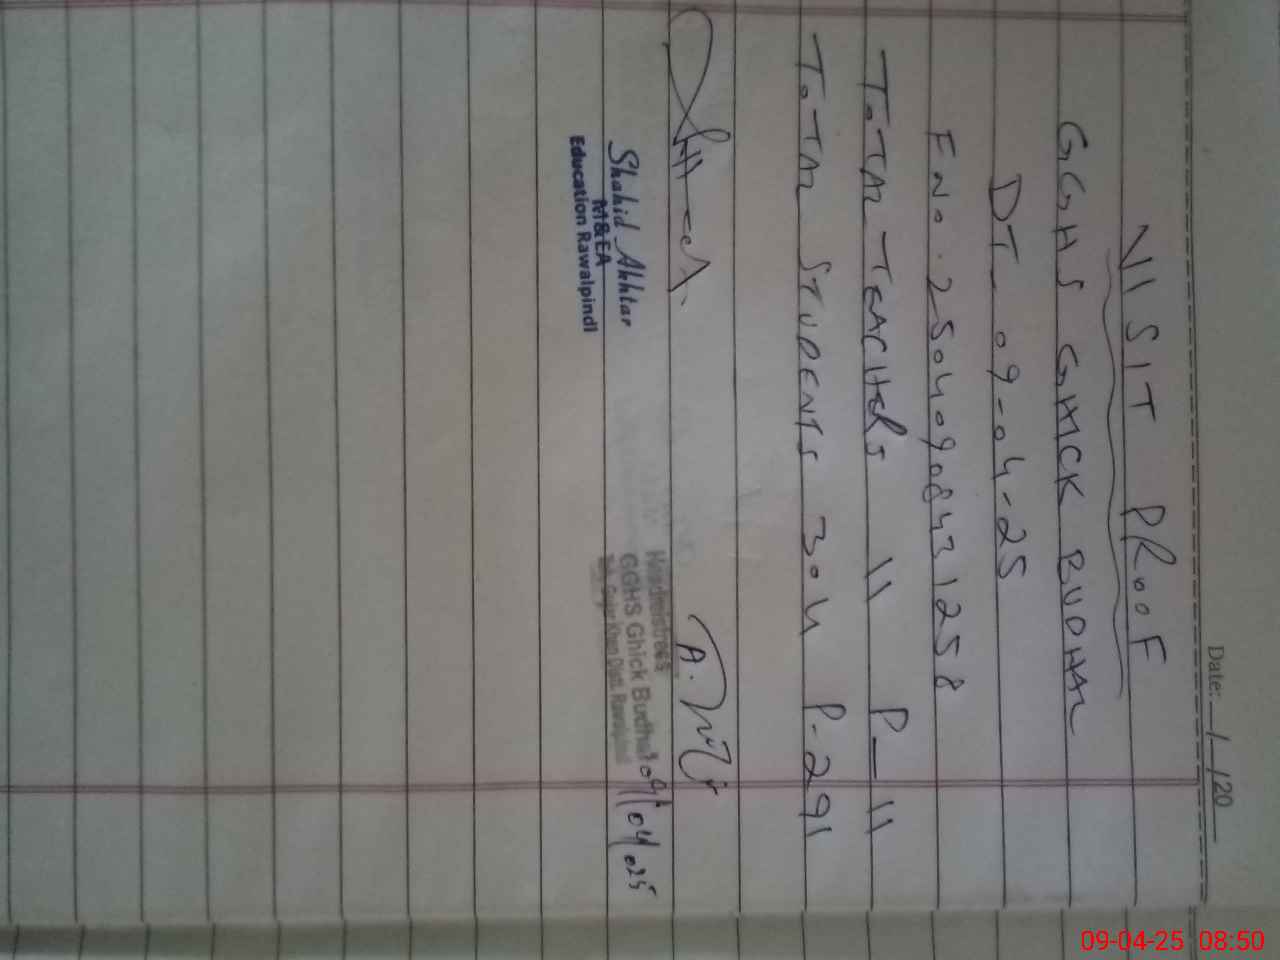 Date: __/__/20__
VISIT PROOF
GGHS GHICK BUDHAL
DT_ 09-04-25
F NO. 25040908431258
TOTAL TEACHERS 11 P_11
TOTAL STUDENTS 304 P-291
Shahid Akhtar
M&EA
Education Rawalpindi
Headmistress
GGHS Ghick Budhal
Gujar Khan Distt. Rawalpindi
09/04/025
09-04-25 08:50